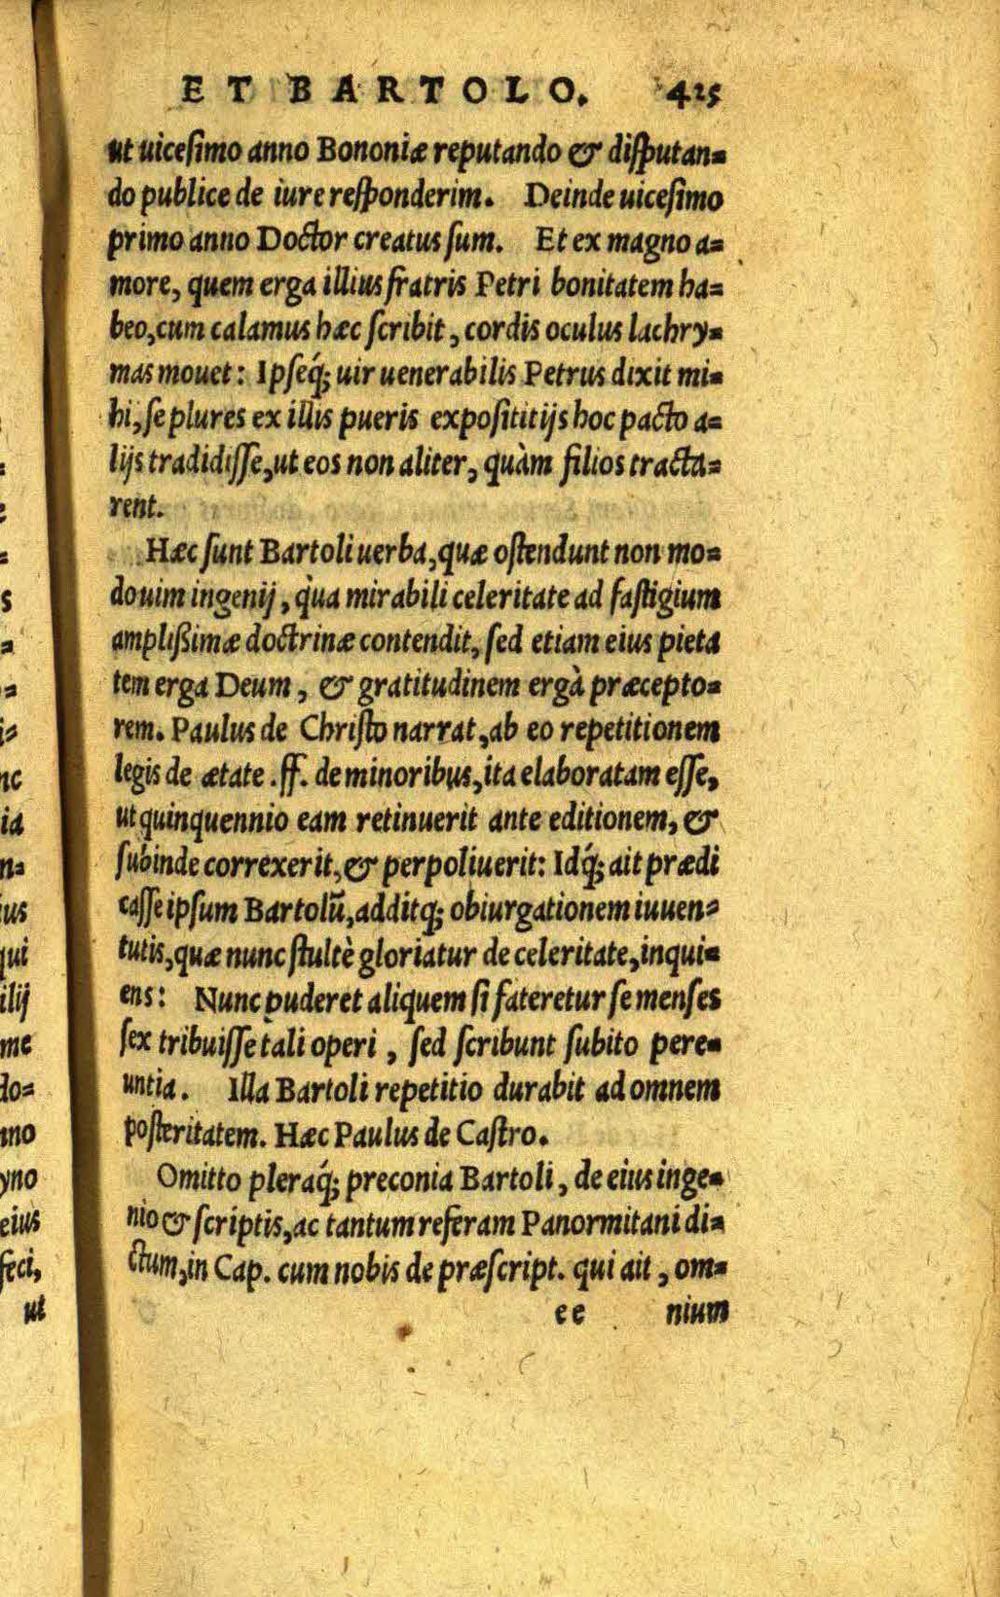 ET BARTOLO. 425
ut uicesimo anno Bononiæ reputando & disputan=
do publice de iure responderim. Deinde uicesimo
primo anno Doctor creatus sum. Et ex magno a=
more, quem erga illius fratris Petri bonitatem ha=
beo, cum calamus hæc scribit, cordis oculus lachry=
mas mouet: Ipseq́; uir uenerabilis Petrus dixit mi=
hi, se plures ex illis pueris exposititijs hoc pacto a=
lijs tradidisse, ut eos non aliter, quàm filios tracta=
rent.
Hæc sunt Bartoli uerba, quæ ostendunt non mo=
do uim ingenij, qua mirabili celeritate ad fastigium
amplißimæ doctrinæ contendit, sed etiam eius pieta
tem erga Deum, & gratitudinem ergà præcepto=
rem. Paulus de Christo narrat, ab eo repetitionem
legis de ætate. ff. de minoribus, ita elaboratam esse,
ut quinquennio eam retinuerit ante editionem, &
subinde correxerit, & perpoliuerit: Idq́; ait prædi
casse ipsum Bartolū, additq; obiurgationem iuuen=
tutis, quæ nunc stultè gloriatur de celeritate, inqui=
ens: Nunc puderet aliquem si fateretur se menses
sex tribuisse tali operi, sed scribunt subito pere=
untia. Illa Bartoli repetitio durabit ad omnem
posteritatem. Hæc Paulus de Castro.
Omitto pleraq́; preconia Bartoli, de eius inge=
nio & scriptis, ac tantum referam Panormitani di=
ctum, in Cap. cum nobis de præscript. qui ait, om=
ee nium
s
nc
ia
ius
qui
ilij
me
do=
mo
yno
eius
feci,
ut